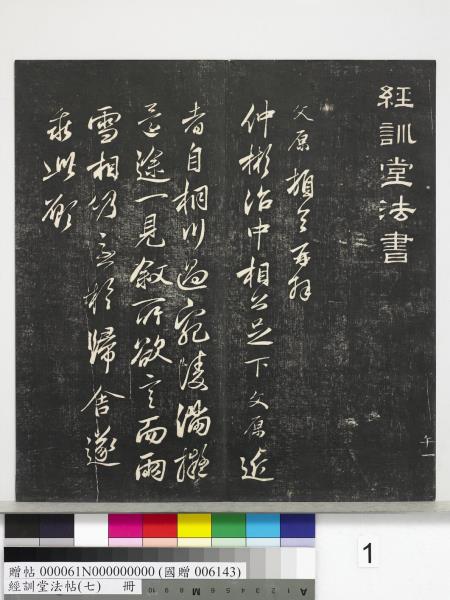 經訓堂法書
文原頓首再拜
仲彬治中相公足下文原近
者自桐川過宛陵滿擬
道途一見敘所欲言而雨
雪相仍亟於歸舍遂
乖此願
1
贈帖 000061N000000000 (國贈 006143)
經訓堂法帖(七) 冊